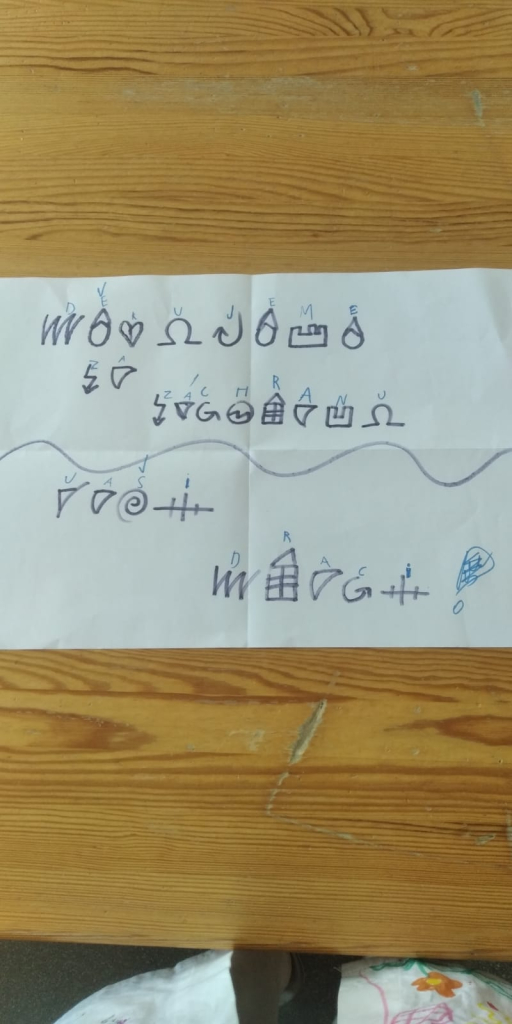 DĚKUJEME
ZA
ZÁCHRANU
VAŠi
DRACi!